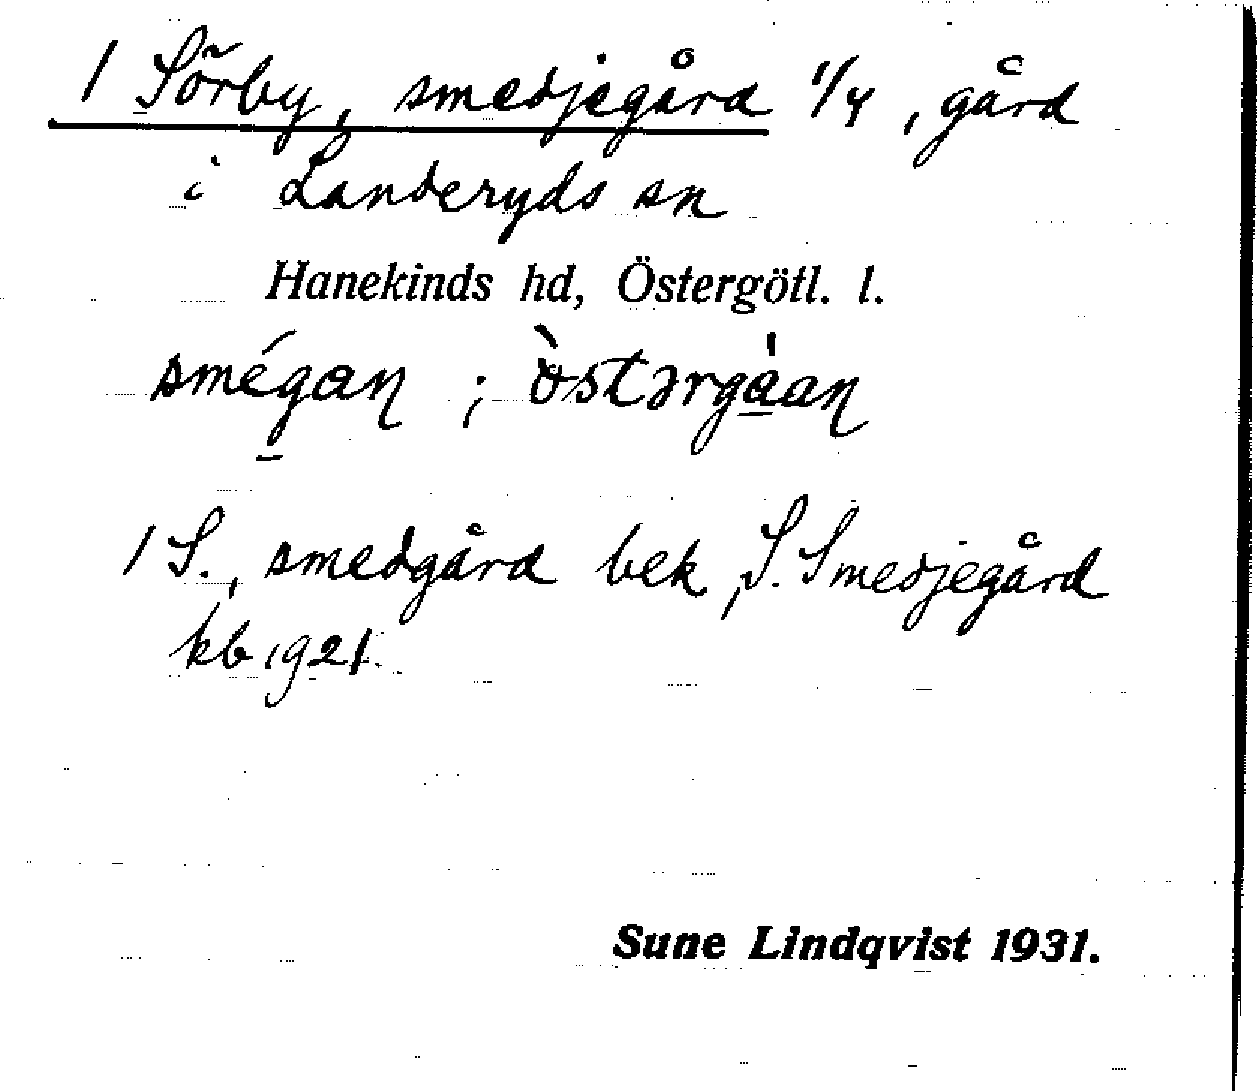 1 Sörby, smedjegård 1/4, gård
i Landeryds sn
Hanekinds hd, Östergötl. l.
smégaɳ ; òstərgáaɳ
1 S., smedgård bek, S. Smedjegård
kb 1921.
Sune Lindqvist 1931.